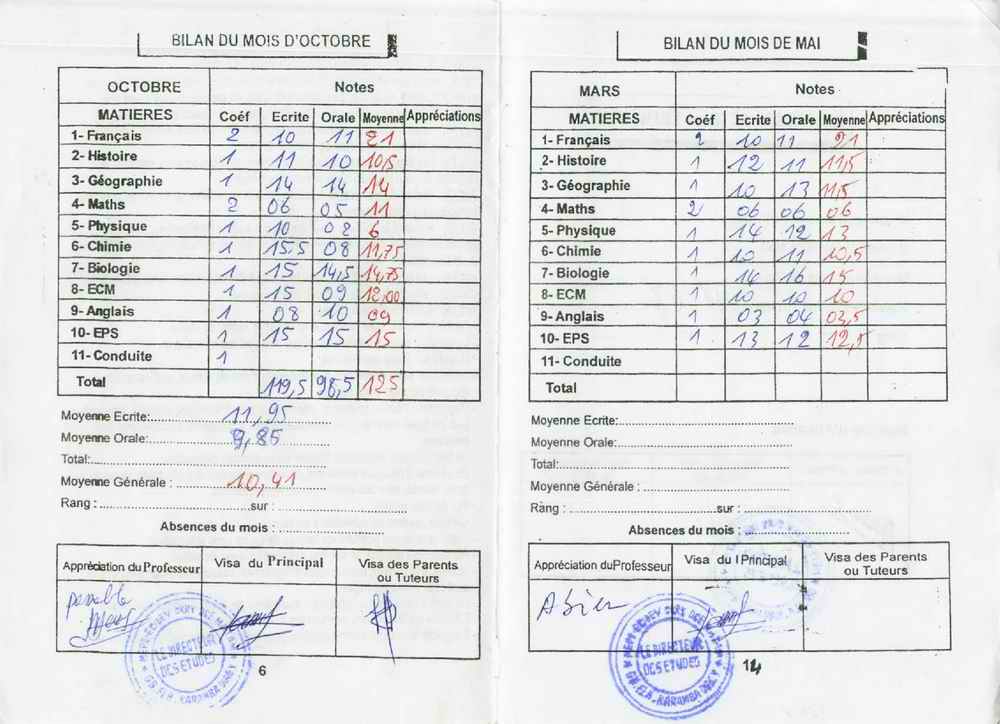 BILAN DU MOIS D'OCTOBRE
OCTOBRE Notes
MATIERES Coéf Ecrite Orale Moyenne Appréciations
1- Français 2 10 11 21
2- Histoire 1 11 10 10,5
3- Géographie 1 14 14 14
4- Maths 2 06 05 11
5- Physique 1 10 02 6
6- Chimie 1 15.5 08 11,75
7- Biologie 1 15 14,5 14,75
8- ECM 1 15 09 12,00
9- Anglais 1 08 10 09
10- EPS 1 15 15 15
11- Conduite 1
Total 119,5 98,5 125
Moyenne Ecrite: 11,95
Moyenne Orale: 9,85
Total:
Moyenne Générale : 10,41
Rang : sur :
Absences du mois :
Appréciation du Professeur Visa du Principal Visa des Parents ou Tuteurs
LE DIRECTEUR
DES ETUDES
6
BILAN DU MOIS DE MAI
MARS Notes
MATIERES Coéf Ecrite Orale Moyenne Appréciations
1- Français 2 10 11 21
2- Histoire 1 12 11 11,5
3- Géographie 1 10 13 11,5
4- Maths 2 06 06 06
5- Physique 1 14 12 13
6- Chimie 1 10 11 10,5
7- Biologie 1 14 16 15
8- ECM 1 10 10 10
9- Anglais 1 03 04 03,5
10- EPS 1 13 12 12,5
11- Conduite
Total
Moyenne Ecrite:
Moyenne Orale:
Total:
Moyenne Générale :
Rang : sur :
Absences du mois :
Appréciation du Professeur Visa du Principal Visa des Parents ou Tuteurs
A Bien
LE DIRECTEUR
DES ETUDES
14